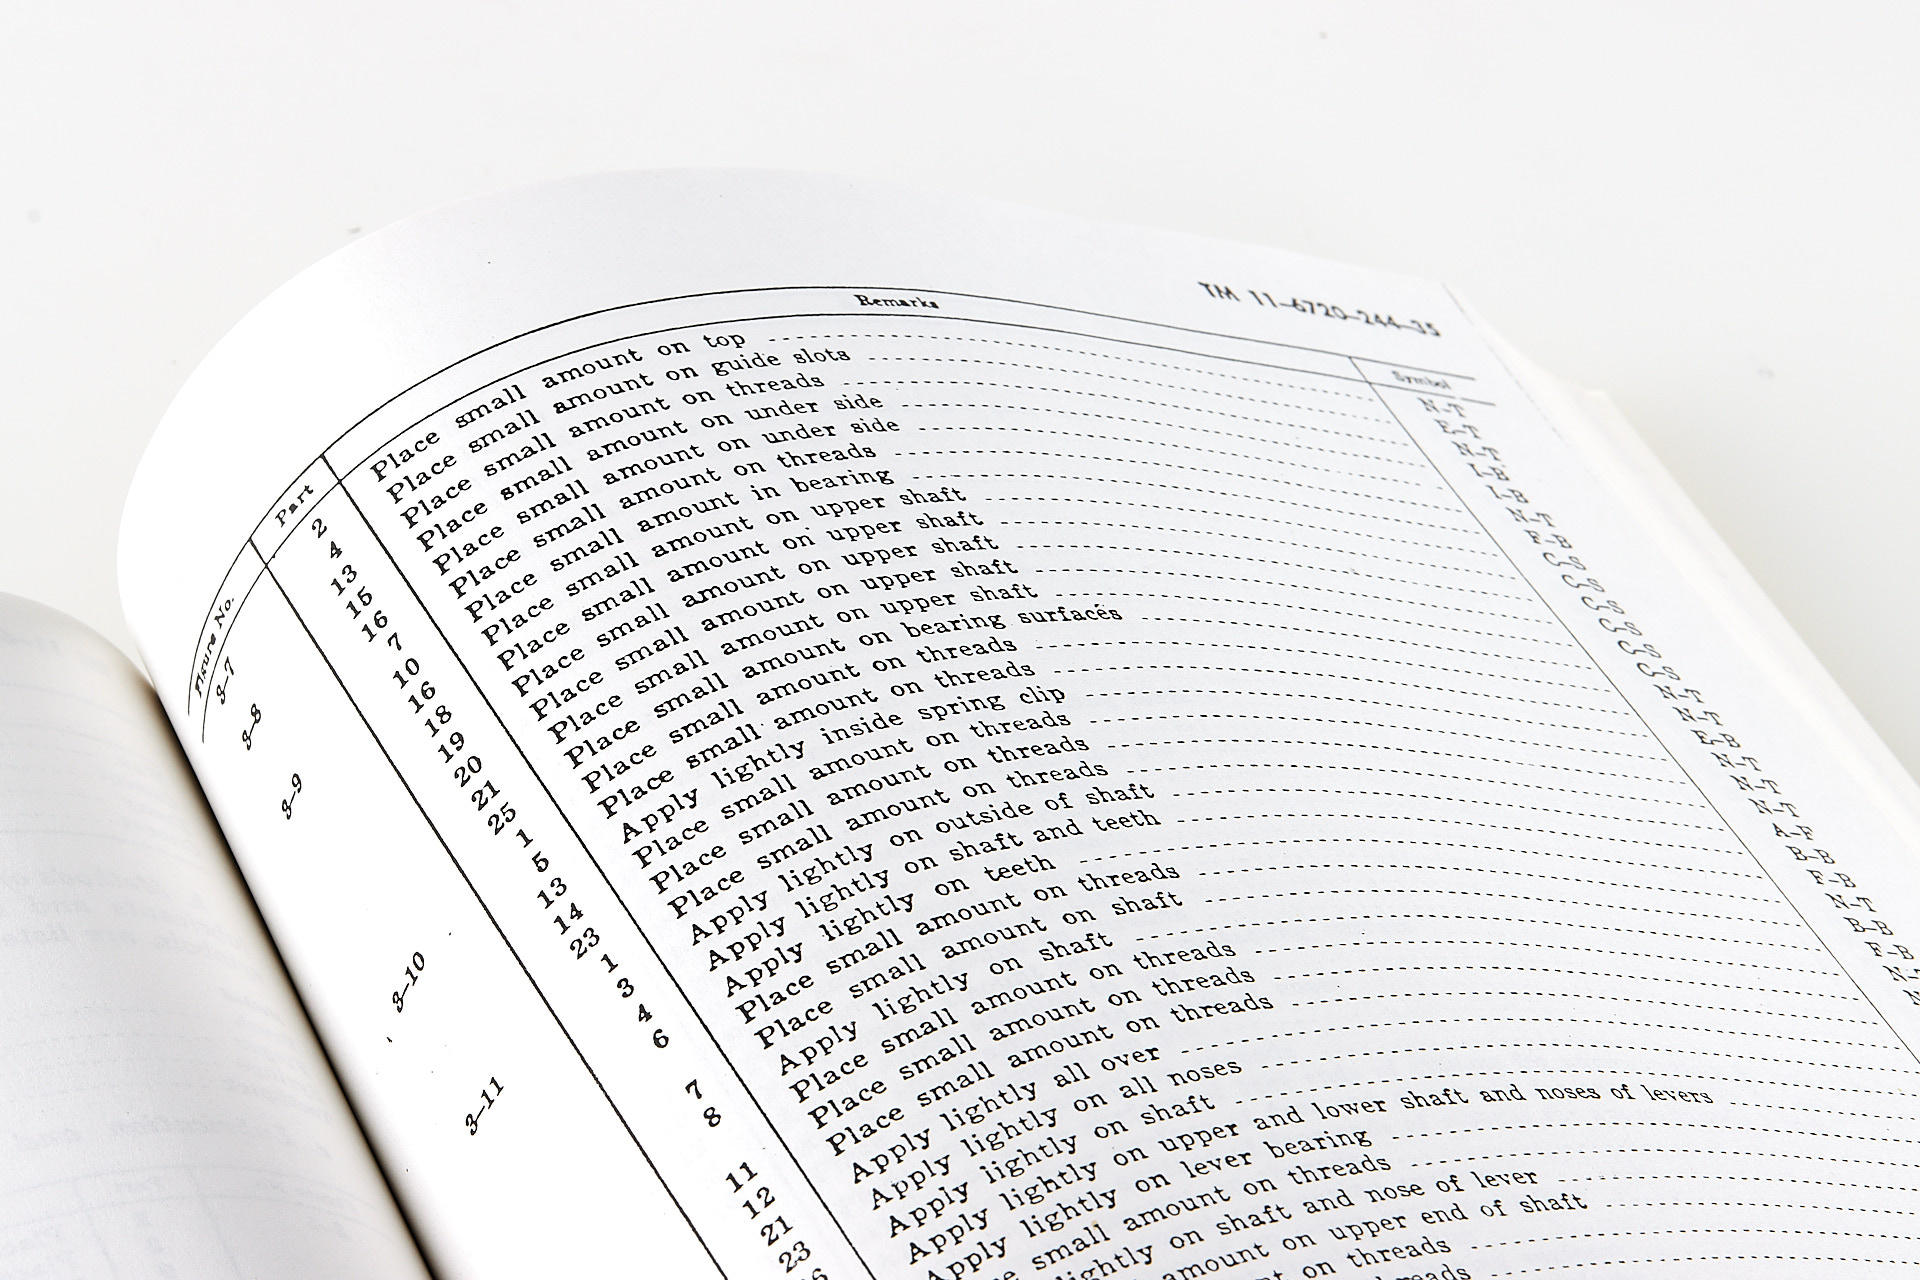 TM 11-6720-244-35
Figure No.
3-7
3-8
3-9
3-10
3-11
Part
2
4
13
15
16
7
10
16
18
19
20
21
25
1
5
13
14
23
1
3
4
6
7
8
11
12
21
23
Remarks
Place small amount on top
Place small amount on guide slots
Place small amount on threads
Place small amount on under side
Place small amount on under side
Place small amount on threads
Place small amount in bearing
Place small amount on upper shaft
Place small amount on upper shaft
Place small amount on upper shaft
Place small amount on upper shaft
Place small amount on upper shaft
Place small amount on bearing surfaces
Place small amount on threads
Place small amount on threads
Apply lightly inside spring clip
Place small amount on threads
Place small amount on threads
Place small amount on threads
Apply lightly on outside of shaft
Apply lightly on shaft and teeth
Apply lightly on teeth
Place small amount on threads
Place small amount on shaft
Apply lightly on shaft
Place small amount on threads
Place small amount on threads
Place small amount on threads
Apply lightly all over
Apply lightly on all noses
Apply lightly on shaft
Apply lightly on upper and lower shaft and noses of levers
Apply lightly on lever bearing
small amount on threads
lightly on shaft and nose of lever
amount on upper end of shaft
on threads
Symbol
N-T
E-T
N-T
I-B
I-B
N-T
F-B
C-S
C-S
C-S
C-S
C-S
C-S
N-T
N-T
E-B
N-T
N-T
N-T
A-F
B-B
F-B
N-T
B-B
F-B